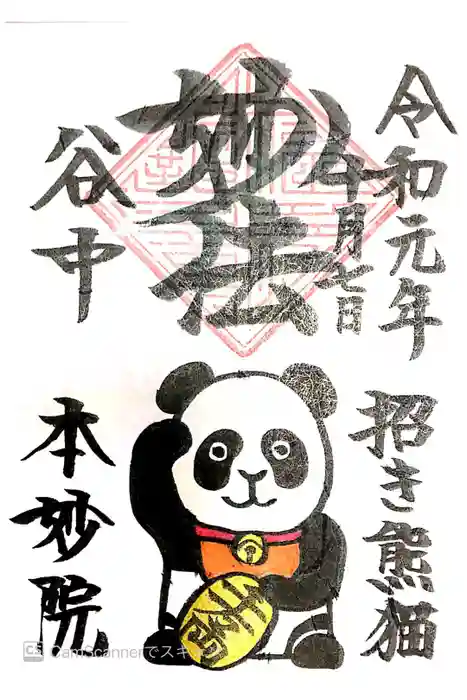 令和元年
月七日
妙法
谷中
招き熊猫
本妙院
CS CamScannerでスキ